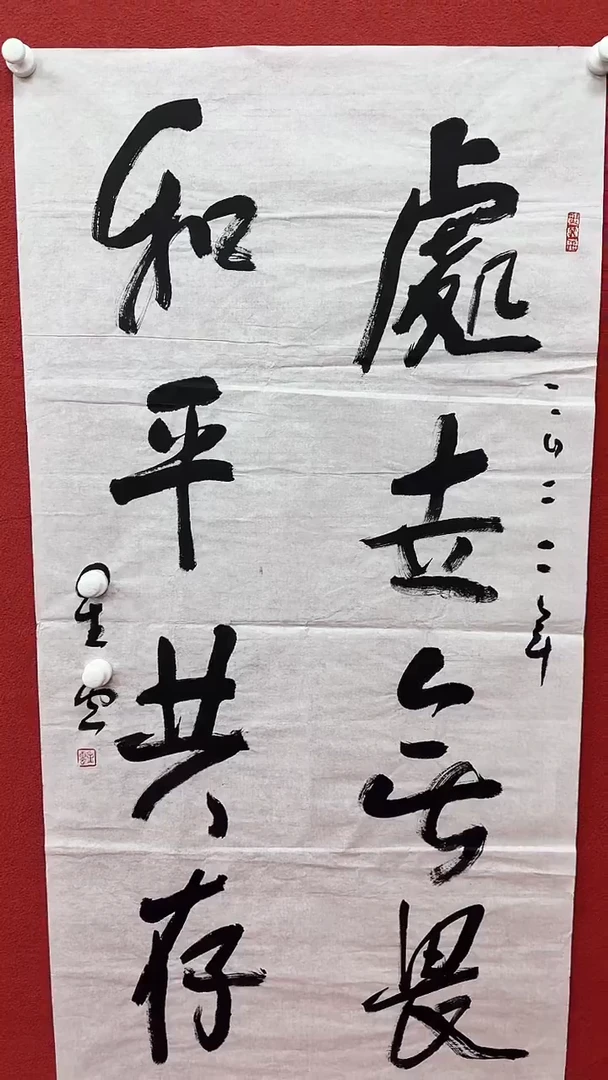 二〇二二年
處世無畏
和平共存
星雲